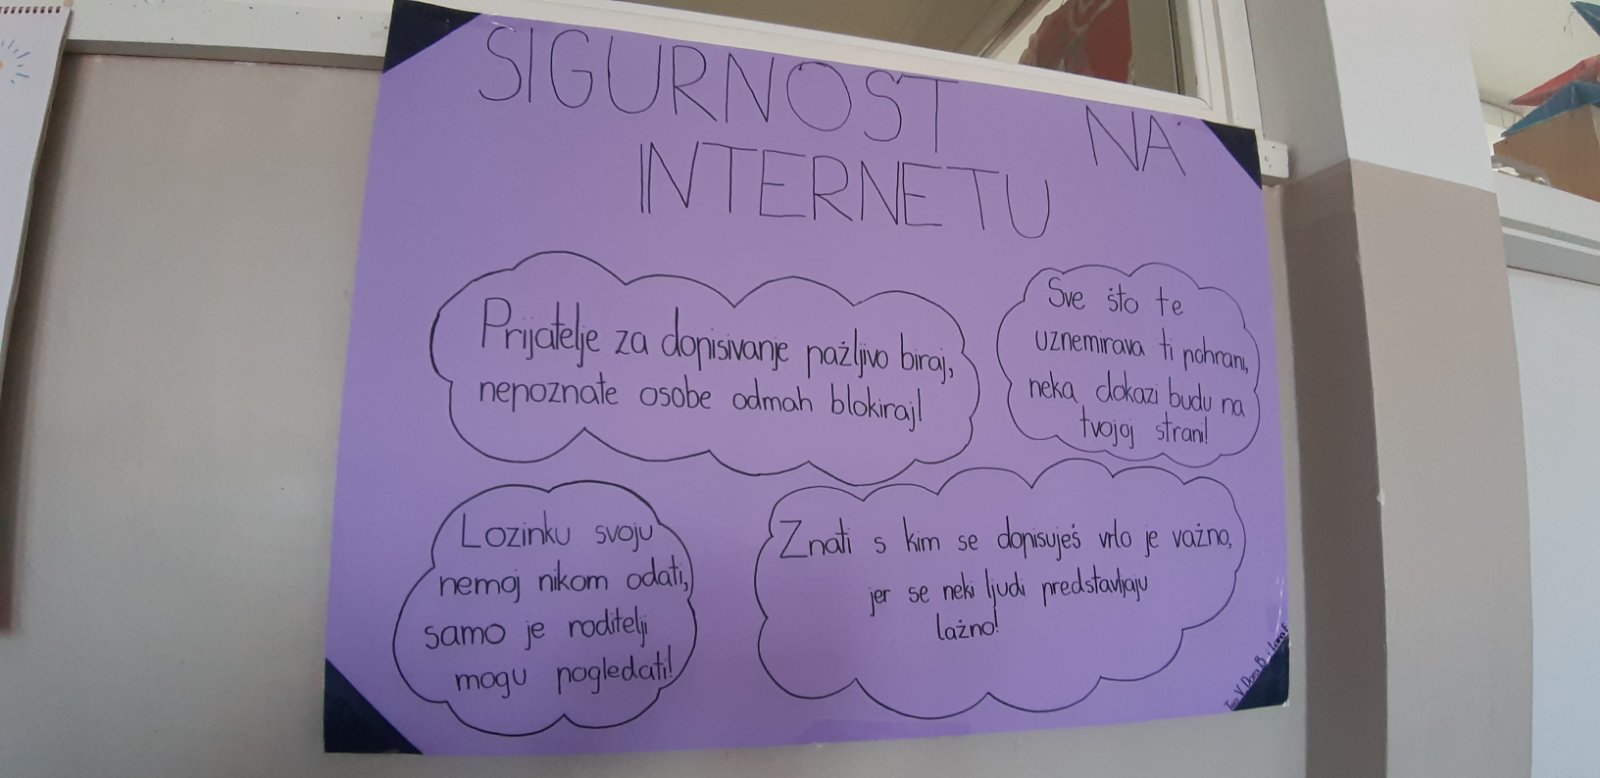 SIGURNOST NA
INTERNETU
Prijatelje za dopisivanje pažljivo biraj,
nepoznate osobe odmah blokiraj!
Sve što te
uznemirava ti pohrani,
neka dokazi budu na
tvojoj strani!
Lozinku svoju
nemoj nikom odati,
samo je roditelji
mogu pogledati!
Znati s kim se dopisuješ vrlo je važno,
jer se neki ljudi predstavljaju
lažno!
Dora B.